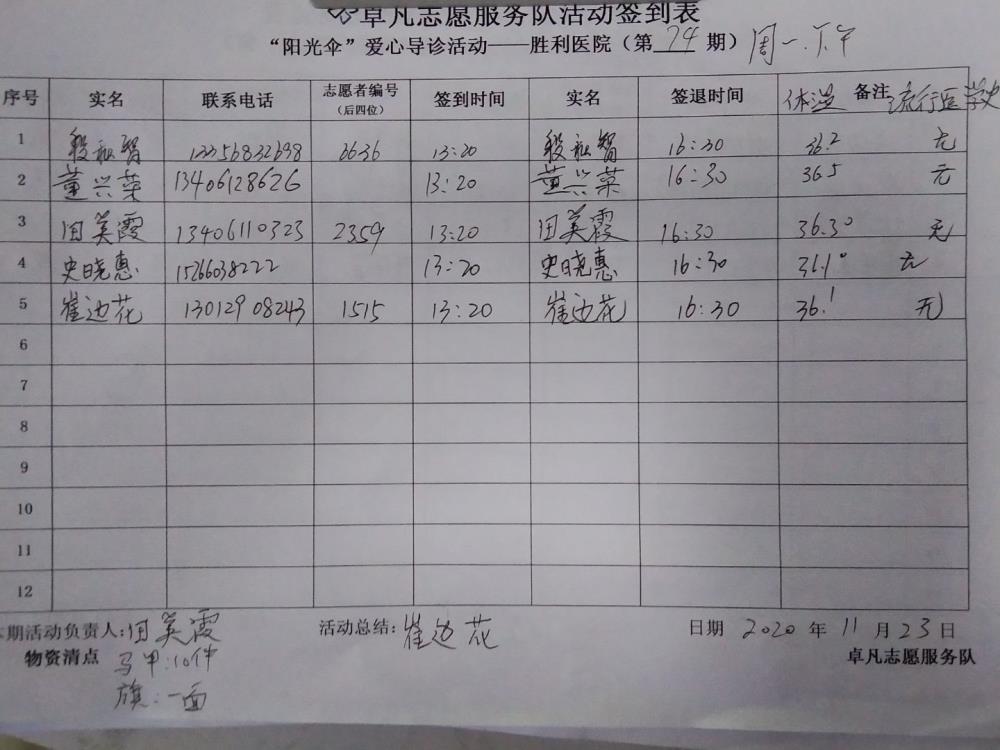 卓凡志愿服务队活动签到表
“阳光伞”爱心导诊活动——胜利医院（第 74 期） 周一.下午
序号 实名 联系电话 志愿者编号（后四位） 签到时间 实名 签退时间 体温 备注 流行医学史
1 殷和智 13356832698 3636 13:20 殷和智 16:30 36.2 无
2 董兴菜 13406128626 13:20 董兴菜 16:30 36.5 无
3 田美霞 13406110323 2359 13:20 田美霞 16:30 36.3° 无
4 史晓惠 15266038222 13:20 史晓惠 16:30 36.1° 无
5 崔边花 13012908243 1515 13:20 崔边花 16:30 36.1 无
6
7
8
9
10
11
12
本期活动负责人:田美霞 活动总结:崔边花 日期 2020 年 11 月 23 日
物资清点 马甲:10件 卓凡志愿服务队
旗:一面